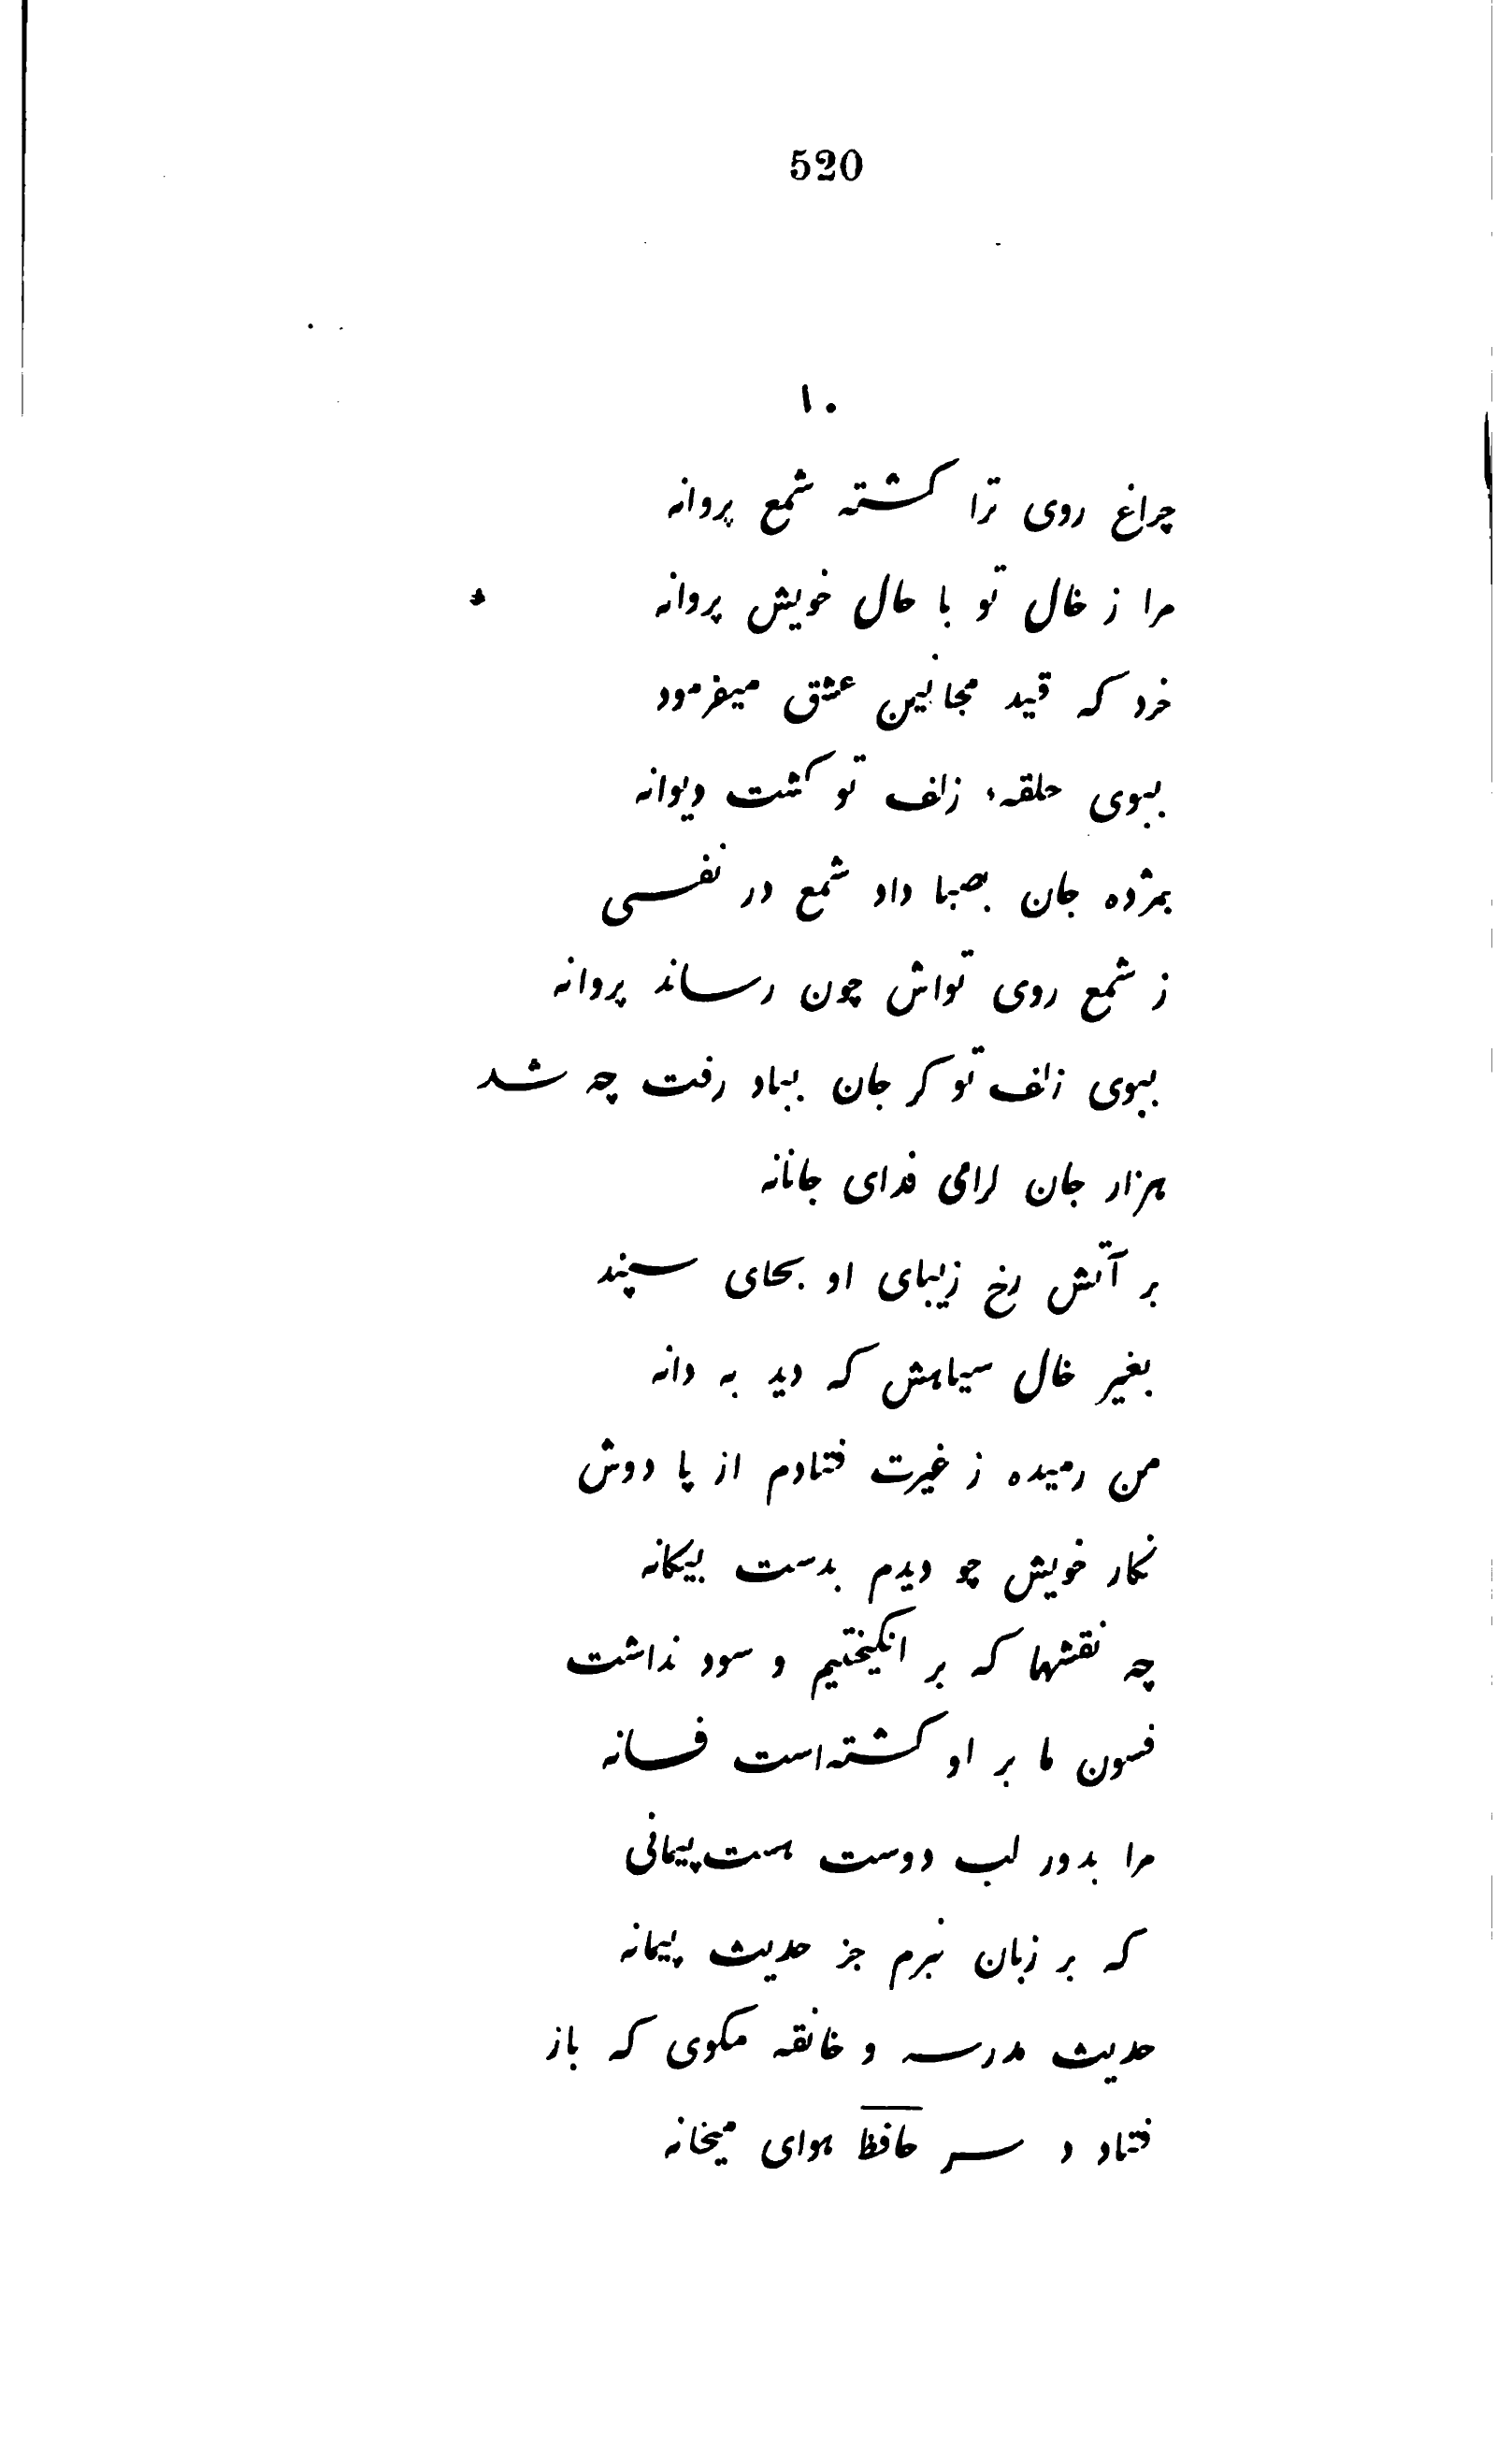 520
۱۰
چراغ روی ترا کشته شمع پروانه
مرا ز خال تو با حال خویش پروانه
خرد که قید مجانین عشق میفرمود
ببوی حلقهٔ زلف تو کشت دیوانه
بمژده جان بصبا داد شمع در نفسی
ز شمع روی تواش چون رساند پروانه
ببوی زلف تو کر جان بباد رفت چه شد
هزار جان کرامی فدای جانانه
بر آتش رخ زیبای او بجای سپند
بغیر خال سیاهش که دید به دانه
من رمیده ز غیرت فتادم از پا دوش
نکار خویش چو دیدم بدست بیکانه
چه نقشها که بر انکیختیم و سود نداشت
فسون ما بر او کشته‌است فسانه
مرا بدور لب دوست هست پیمانی
که بر زبان نبرم جز حدیث پیمانه
حدیث مدرسه و خانقه مکوی که باز
فتاد د سر حافظ هوای میخانه